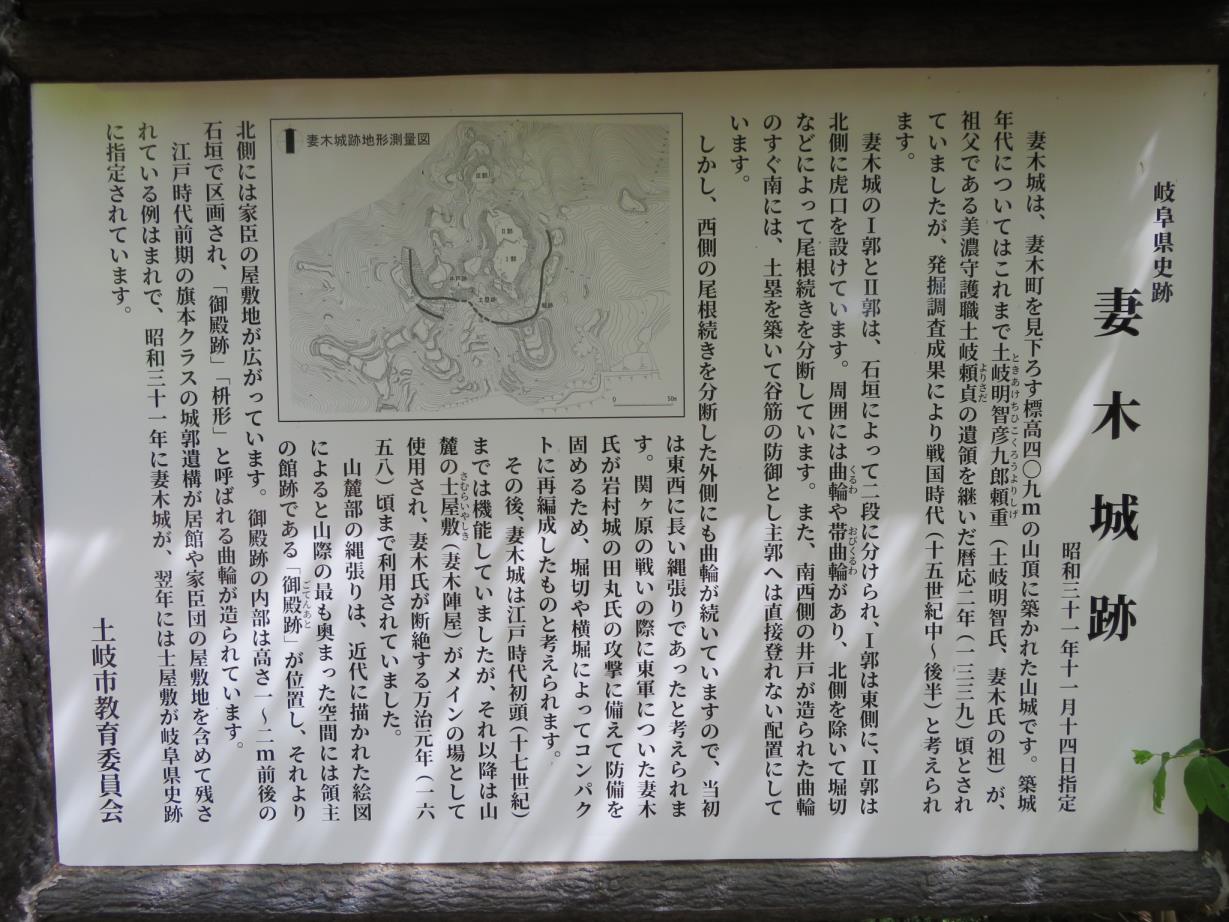 岐阜県史跡
妻木城跡
昭和三十一年十一月十四日指定
妻木城は、妻木町を見下ろす標高四〇九mの山頂に築かれた山城です。築城
年代についてはこれまで土岐明智彦九郎頼重（土岐明智氏、妻木氏の祖）が、
ときあけちひこくろうよりしげ
祖父である美濃守護職土岐頼貞の遺領を継いだ暦応二年（一三三九）頃とされ
よりさだ
ていましたが、発掘調査成果により戦国時代（十五世紀中～後半）と考えられ
ます。
妻木城のⅠ郭とⅡ郭は、石垣によって二段に分けられ、Ⅰ郭は東側に、Ⅱ郭は
北側に虎口を設けています。周囲には曲輪や帯曲輪があり、北側を除いて堀切
くるわ
おびくるわ
などによって尾根続きを分断しています。また、南西側の井戸が造られた曲輪
のすぐ南には、土塁を築いて谷筋の防御とし主郭へは直接登れない配置にして
います。
しかし、西側の尾根続きを分断した外側にも曲輪が続いていますので、当初
は東西に長い縄張りであったと考えられま
す。関ヶ原の戦いの際に東軍についた妻木
氏が岩村城の田丸氏の攻撃に備えて防備を
固めるため、堀切や横堀によってコンパク
トに再編成したものと考えられます。
その後、妻木城は江戸時代初頭（十七世紀）
までは機能していましたが、それ以降は山
麓の士屋敷（妻木陣屋）がメインの場として
さむらいやしき
使用され、妻木氏が断絶する万治元年（一六
五八）頃まで利用されていました。
山麓部の縄張りは、近代に描かれた絵図
によると山際の最も奥まった空間には領主
の館跡である「御殿跡」が位置し、それより
ごてんあと
北側には家臣の屋敷地が広がっています。御殿跡の内部は高さ一～二m前後の
石垣で区画され、「御殿跡」「枡形」と呼ばれる曲輪が造られています。
江戸時代前期の旗本クラスの城郭遺構が居館や家臣団の屋敷地を含めて残さ
れている例はまれで、昭和三十一年に妻木城が、翌年には士屋敷が岐阜県史跡
に指定されています。
土岐市教育委員会
妻木城跡地形測量図
Ⅱ郭
Ⅰ郭
井戸跡
土塁跡
0
50m